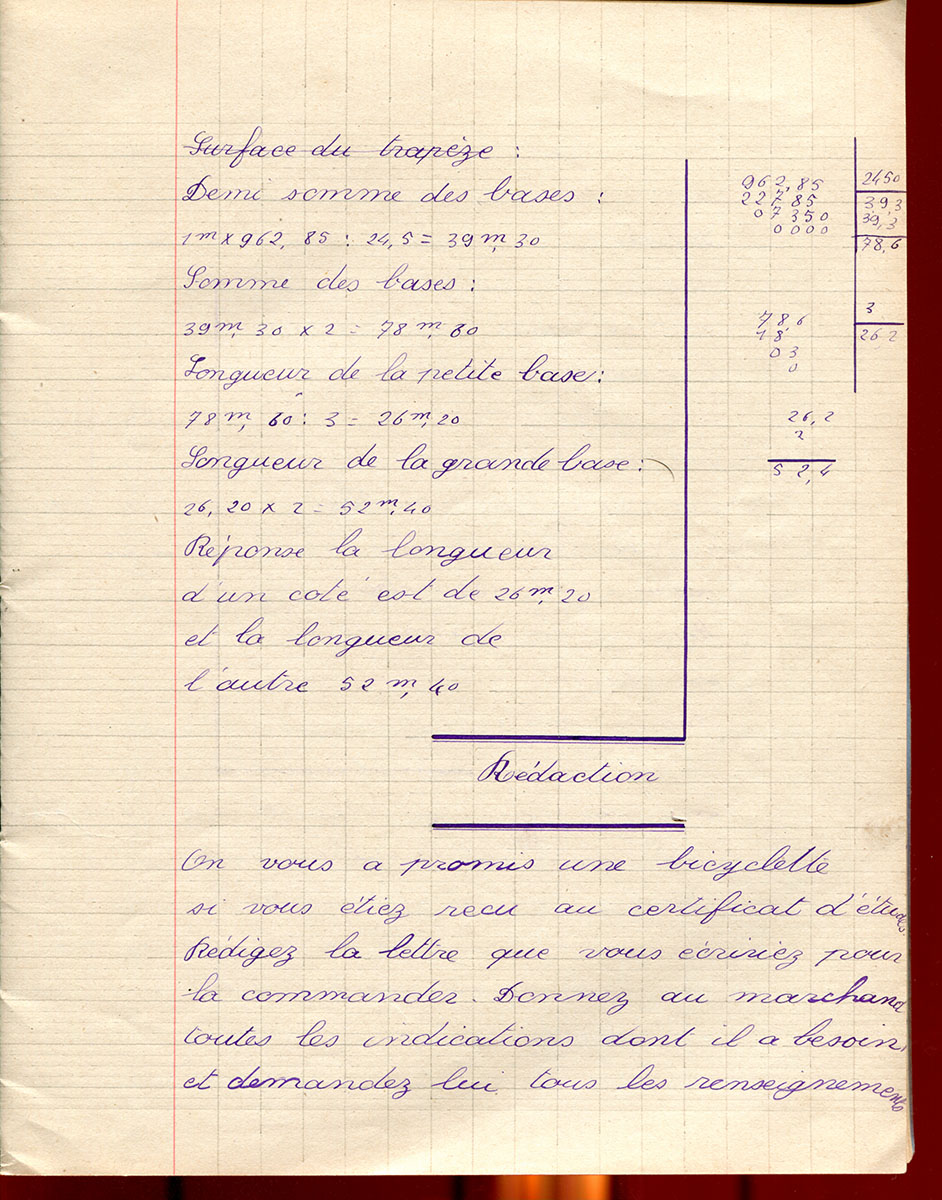 Surface du trapèze :
Demi somme des bases :
1m × 962, 85 : 24,5 = 39m, 30
Somme des bases :
39m, 30 × 2 = 78m, 60
Longueur de la petite base :
78m, 60 : 3 = 26m, 20
Longueur de la grande base :
26, 20 × 2 = 52m, 40
Réponse la longueur
d'un coté est de 26m, 20
et la longueur de
l'autre 52m, 40
962,85 2450
227 85 39,3
07350 39,3
0000 78,6
78,6 3
18 26,2
03
0
26,2
2
52,4
Rédaction
On vous a promis une bicyclette
si vous étiez recu au certificat d'études.
Rédigez la lettre que vous écririez pour
la commander. Donnez au marchand
toutes les indications dont il a besoin,
et demandez lui tous les renseignements